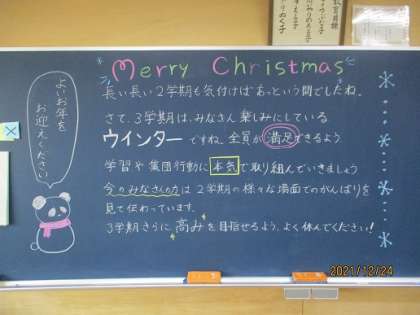 Merry Christmas
長い長い2学期も気付けばあっという間でしたね。
さて、3学期は、みなさん楽しみにしている
ウインターですね。全員が満足できるよう
学習や集団行動に本気で取り組んでいきましょう
今のみなさんの力は2学期の様々な場面でのがんばりを
見て伝わっています。
3学期さらに高みを目指せるよう、よく休んでください!
よいお年を
お迎えください
2021/12/24